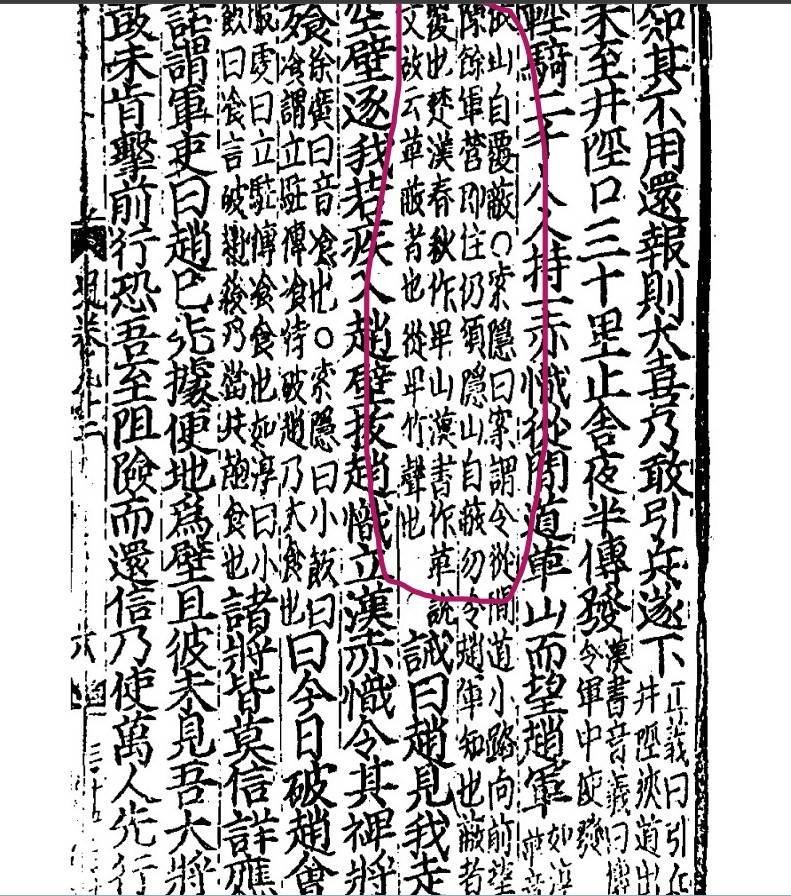 知其不用還報則大喜乃敢引兵遂下
正義曰引兵
井陘狹道出
未至井陘口三十里止舍夜半傳發
漢書音義曰傳
令軍中使發
輕騎二千人人持一赤幟從間道萆山而望趙軍
如淳
萆音
山自覆蔽○索隱曰案謂令從間道小路向前望
陳餘軍營即住仍須隱山自蔽勿令趙軍知也蔽者
覆也楚漢春秋作卑山漢書作萆說
文故云萆蔽者也從卑竹聲也
誡曰趙見我走
空壁逐我若疾入趙壁拔趙幟立漢赤幟令其裨將
飡
徐廣曰音飡也○索隱曰小飯曰
飡謂立駐傳飡待破趙乃大食也
曰今日破趙會
服虔曰立駐傳飡食也如淳曰小
飯曰飡言破趙後乃當共飽食也
諸將皆莫信詳應
諾謂軍吏曰趙已先據便地爲壁且彼未見吾大將
鼓未肯擊前行恐吾至阻險而還信乃使萬人先行
九十二
六